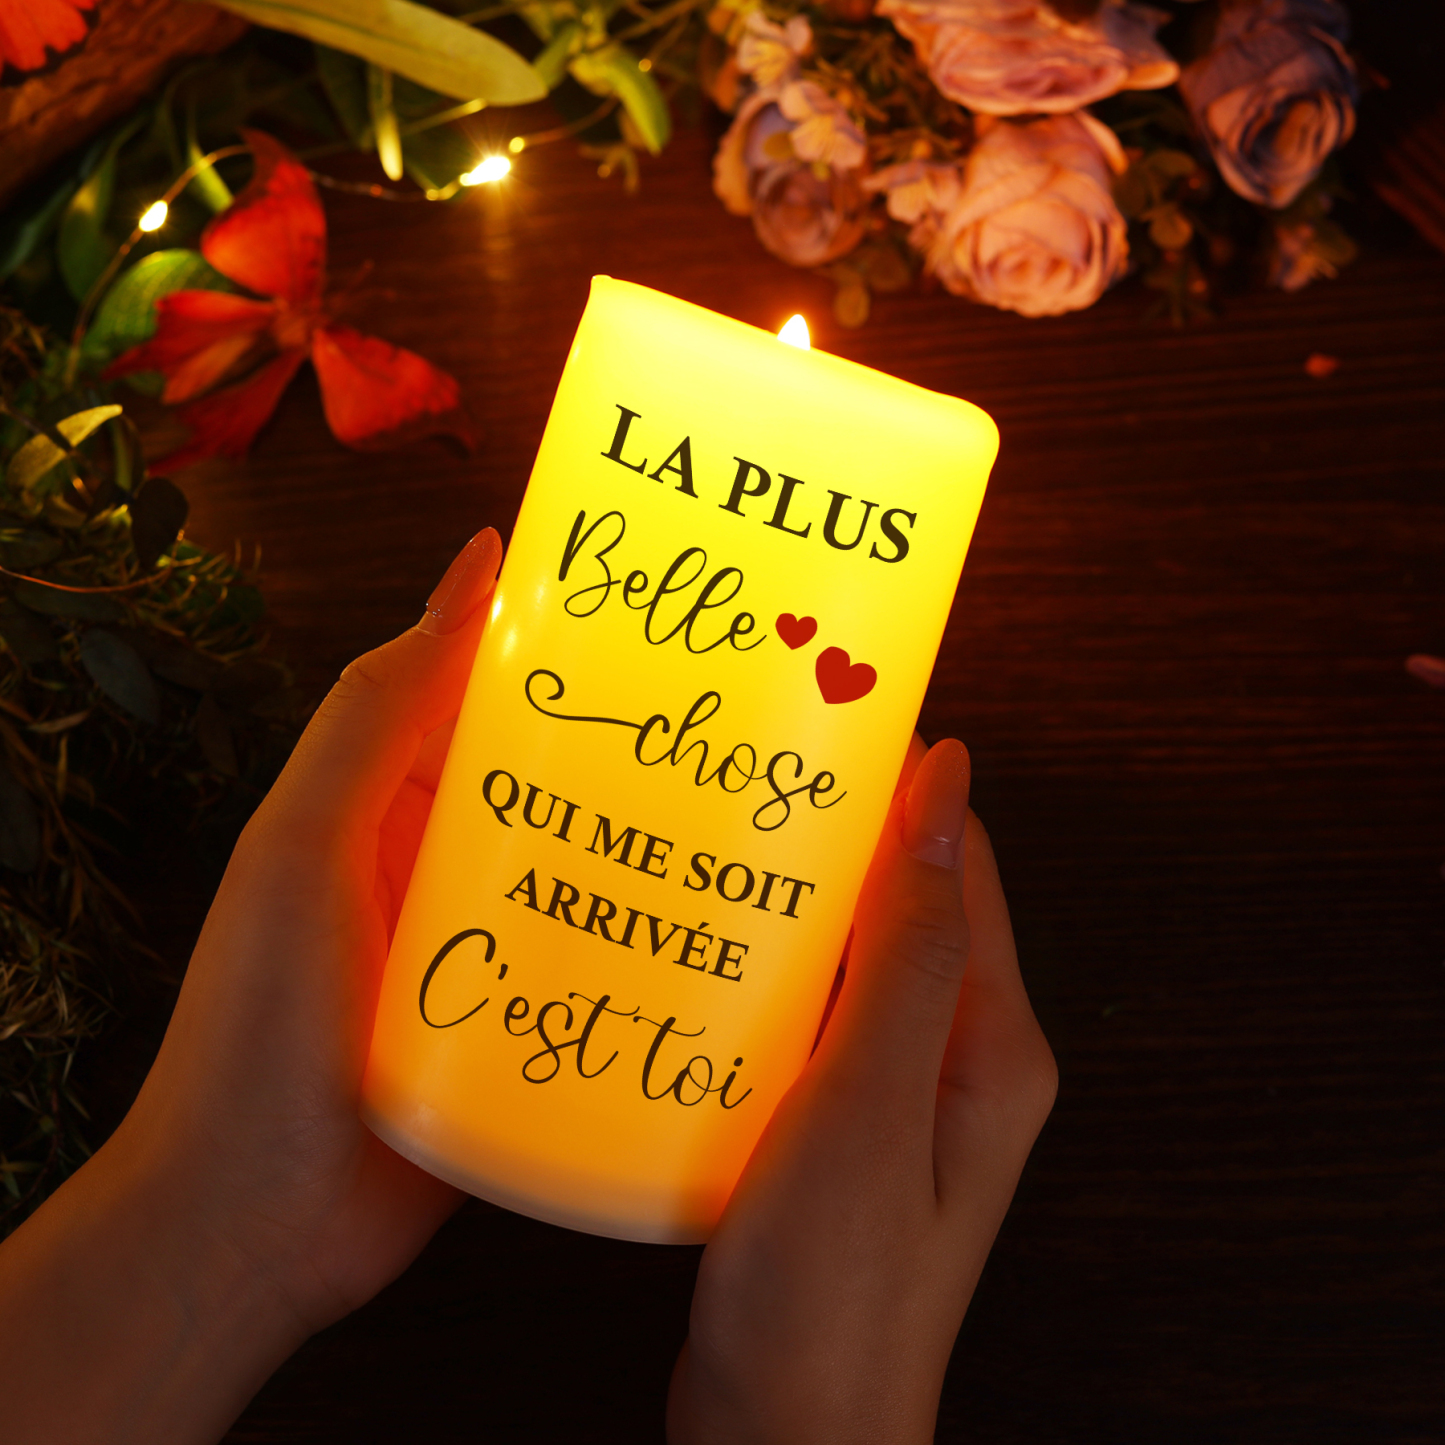 LA PLUS
Belle
chose
QUI ME SOIT
ARRIVÉE
C'est toi